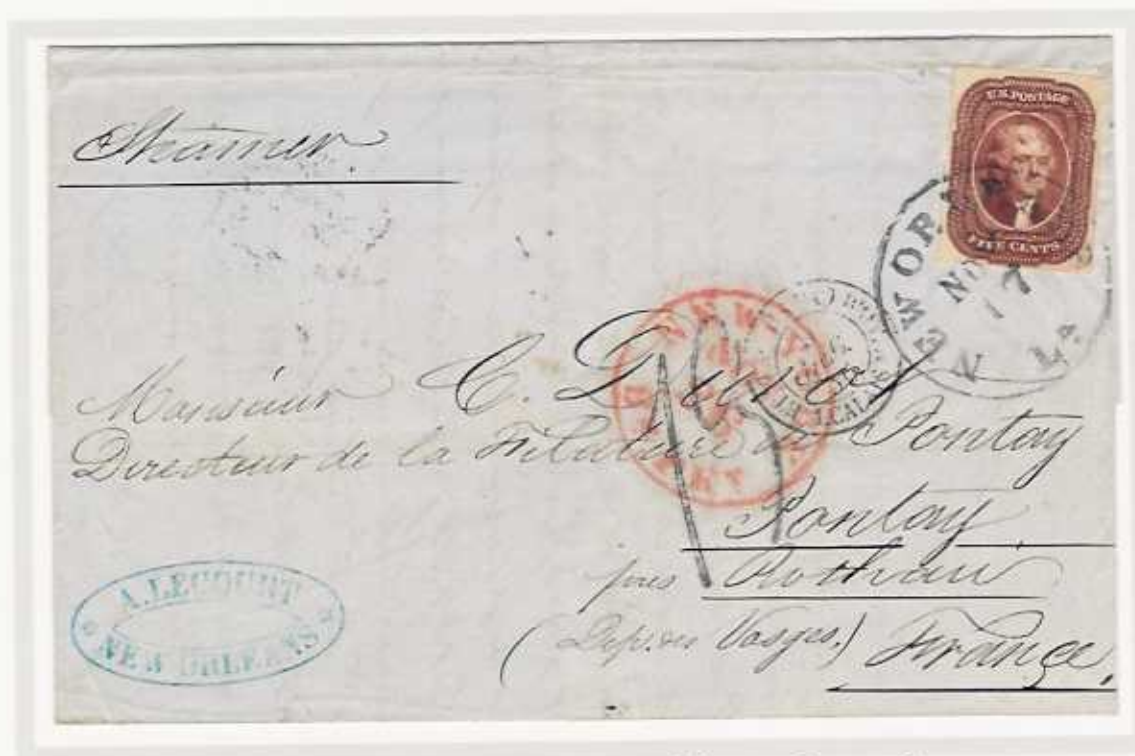 Steamer
U.S. POSTAGE
FIVE CENTS
NEW OR
NOV
17
La.
NEW-Y
Monsieur C.
Directeur de la Filature de Pontay
Pontay
près Rothau
(Dep. des Vosges.) France.
A. LECOURT
NEW ORLEANS
15